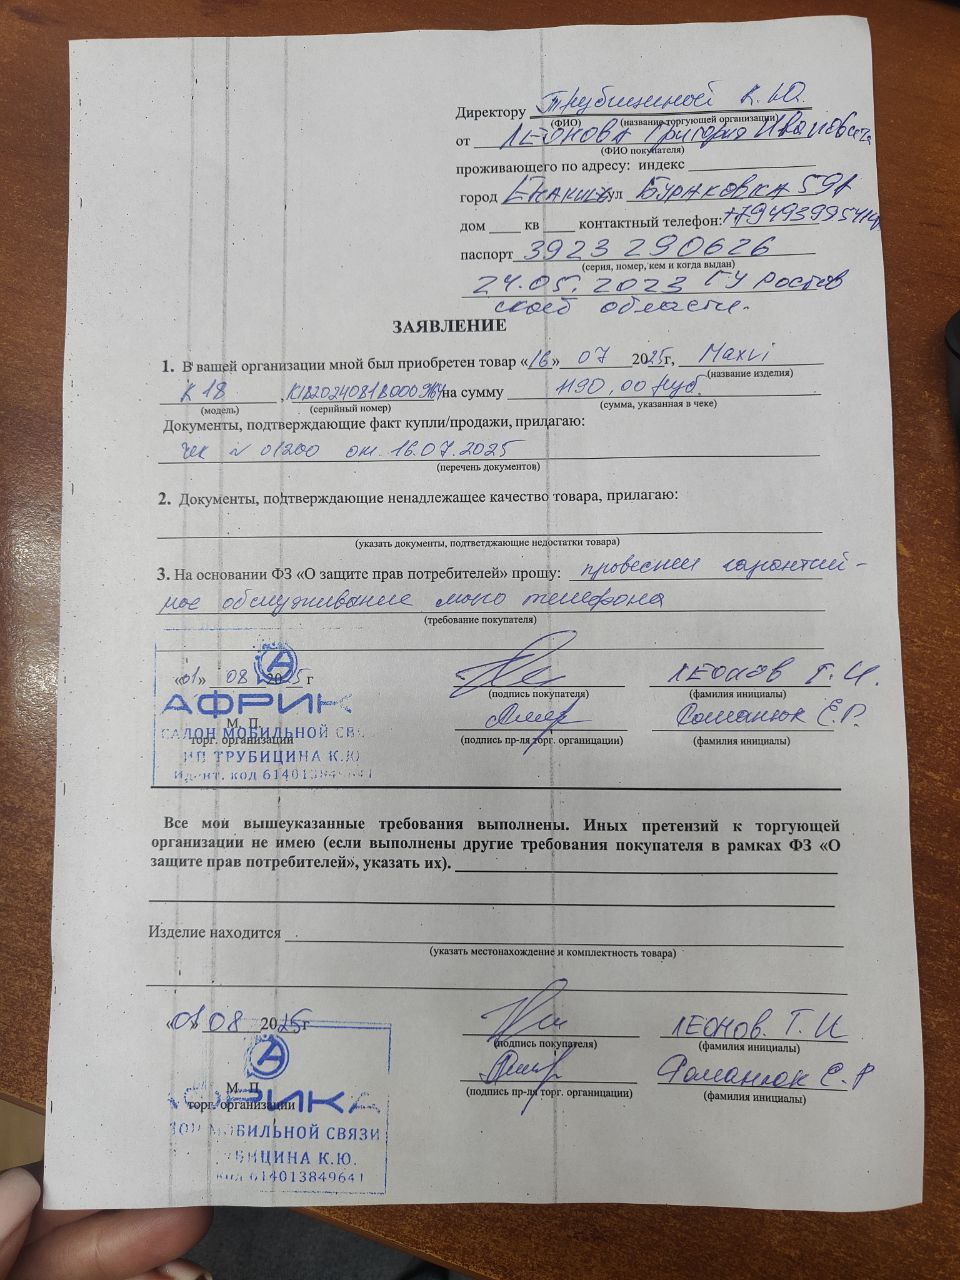 Директору Трубициной К.Ю.
(ФИО) (название торгующей организации)
от ЛЕОНОВА Григория Ивановича
(ФИО покупателя)
проживающего по адресу: индекс
город Енакиу ул Бураковка 59А
дом кв контактный телефон:
паспорт 3923 290626
(серия, номер, кем и когда выдан)
24.05.2023 ГУ Ростов
ской области.
ЗАЯВЛЕНИЕ
1. В вашей организации мной был приобретен товар «16» 07 2025г, Maxvi
(название изделия)
К 18, на сумму 1190,00 руб.
(модель) (серийный номер) (сумма, указанная в чеке)
Документы, подтверждающие факт купли/продажи, прилагаю:
Чек № 01200 от 16.07.2025
(перечень документов)
2. Документы, подтверждающие ненадлежащее качество товара, прилагаю:
(указать документы, подтветджающие недостатки товара)
3. На основании ФЗ «О защите прав потребителей» прошу: провести гарантий-
ное обслуживание моего телефона
(требование покупателя)
«01» 08 2025 г ЛЕОНОВ Г.И.
(подпись покупателя) (фамилия инициалы)
АФРИКА
М. П. Романюк Е.Р.
САЛОН МОБИЛЬНОЙ СВЯ
торг. организации (подпись пр-ля торг. органицации) (фамилия инициалы)
ИП ТРУБИЦИНА К.Ю
Идент. код 614013849641
Все мои вышеуказанные требования выполнены. Иных претензий к торгующей
организации не имею (если выполнены другие требования покупателя в рамках ФЗ «О
защите прав потребителей», указать их).
Изделие находится
(указать местонахождение и комплектность товара)
«01» 08 2025г ЛЕОНОВ. Г. И
(подпись покупателя) (фамилия инициалы)
М. П Романюк Е.Р
АФРИКА
торг. организации (подпись пр-ля торг. организации) (фамилия инициалы)
МОБИЛЬНОЙ СВЯЗИ
РУБИЦИНА К.Ю.
код 614013849641